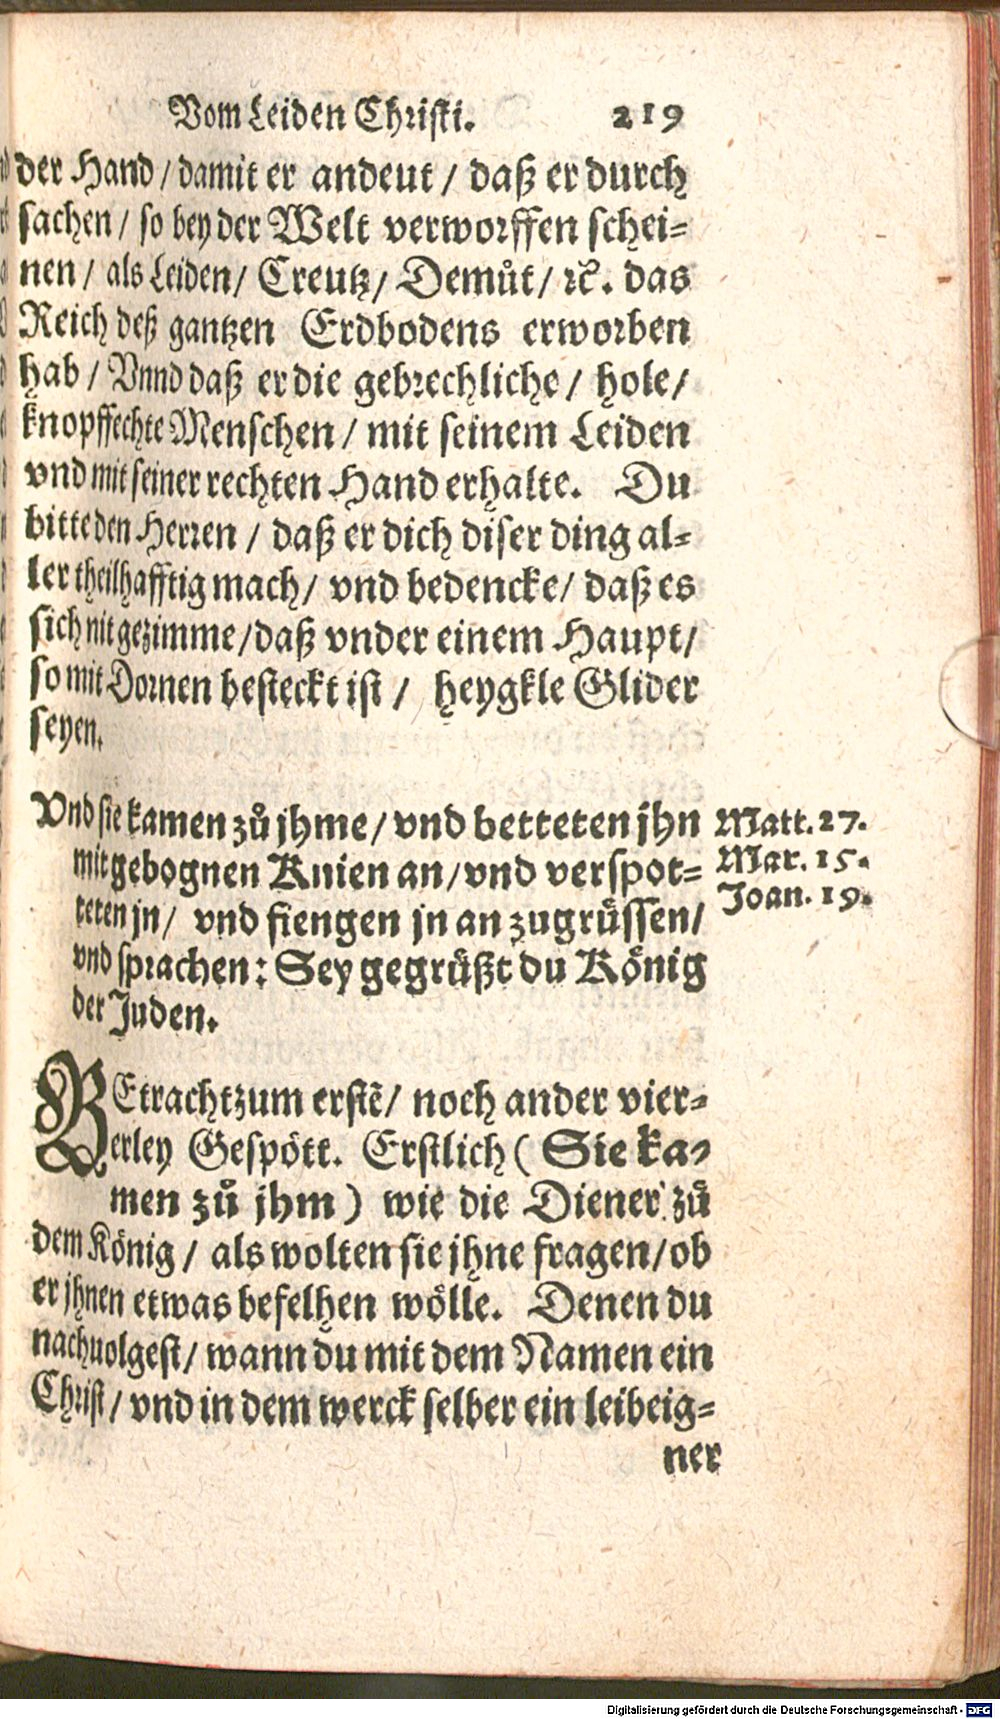 Vom Leiden Christi. 219
der Hand / damit er andeut / daß er durch
sachen / so bey der Welt verworffen schei⸗
nen / als Leiden / Creutz / Demuͤt / ꝛc̃. das
Reich deß gantzen Erdbodens erworben
hab / Vnnd daß er die gebrechliche / hole /
knopffechte Menschen / mit seinem Leiden
vnd mit seiner rechten Hand erhalte. Du
bitte den Herren / daß er dich diser ding al⸗
ler theilhafftig mach / vnd bedencke / daß es
sich nit gezimme / daß vnder einem Haupt /
so mit Dornen besteckt ist / heygkle Glider
seyen.
Vnd sie kamen zuͦ jhme / vnd betteten jhn
mit gebognen Knien an / vnd verspot⸗
teten jn / vnd fiengen jn an zugruͤssen /
vnd sprachen: Sey gegruͤßt du Koͤnig
der Juden.
Matt. 27.
Mar. 15.
Joan. 19.
BEtracht zum erstẽ / noch ander vier⸗
erley Gespoͤtt. Erstlich ( Sie ka⸗
men zuͦ jhm ) wie die Diener zuͦ
dem Koͤnig / als wolten sie jhne fragen / ob
er jhnen etwas befelhen woͤlle. Denen du
nachuolgest / wann du mit dem Namen ein
Christ / vnd in dem werck selber ein leibeig⸗
ner
Digitalisierung gefördert durch die Deutsche Forschungsgemeinschaft - DFG